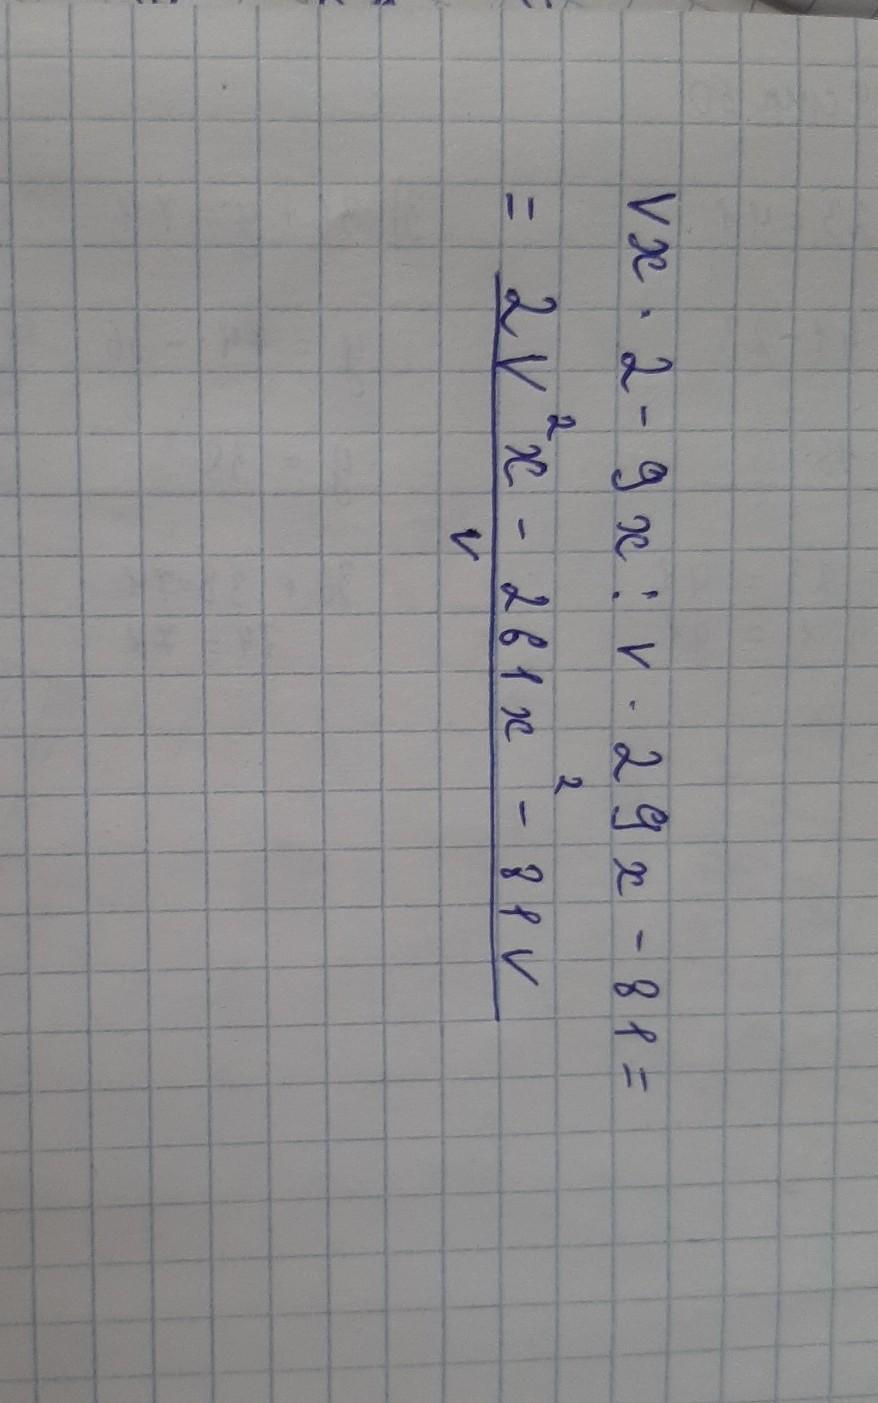 Vx · 2 - 9x : v · 29x - 81 =
= \frac{2V^2x - 261x^2 - 81v}{v}